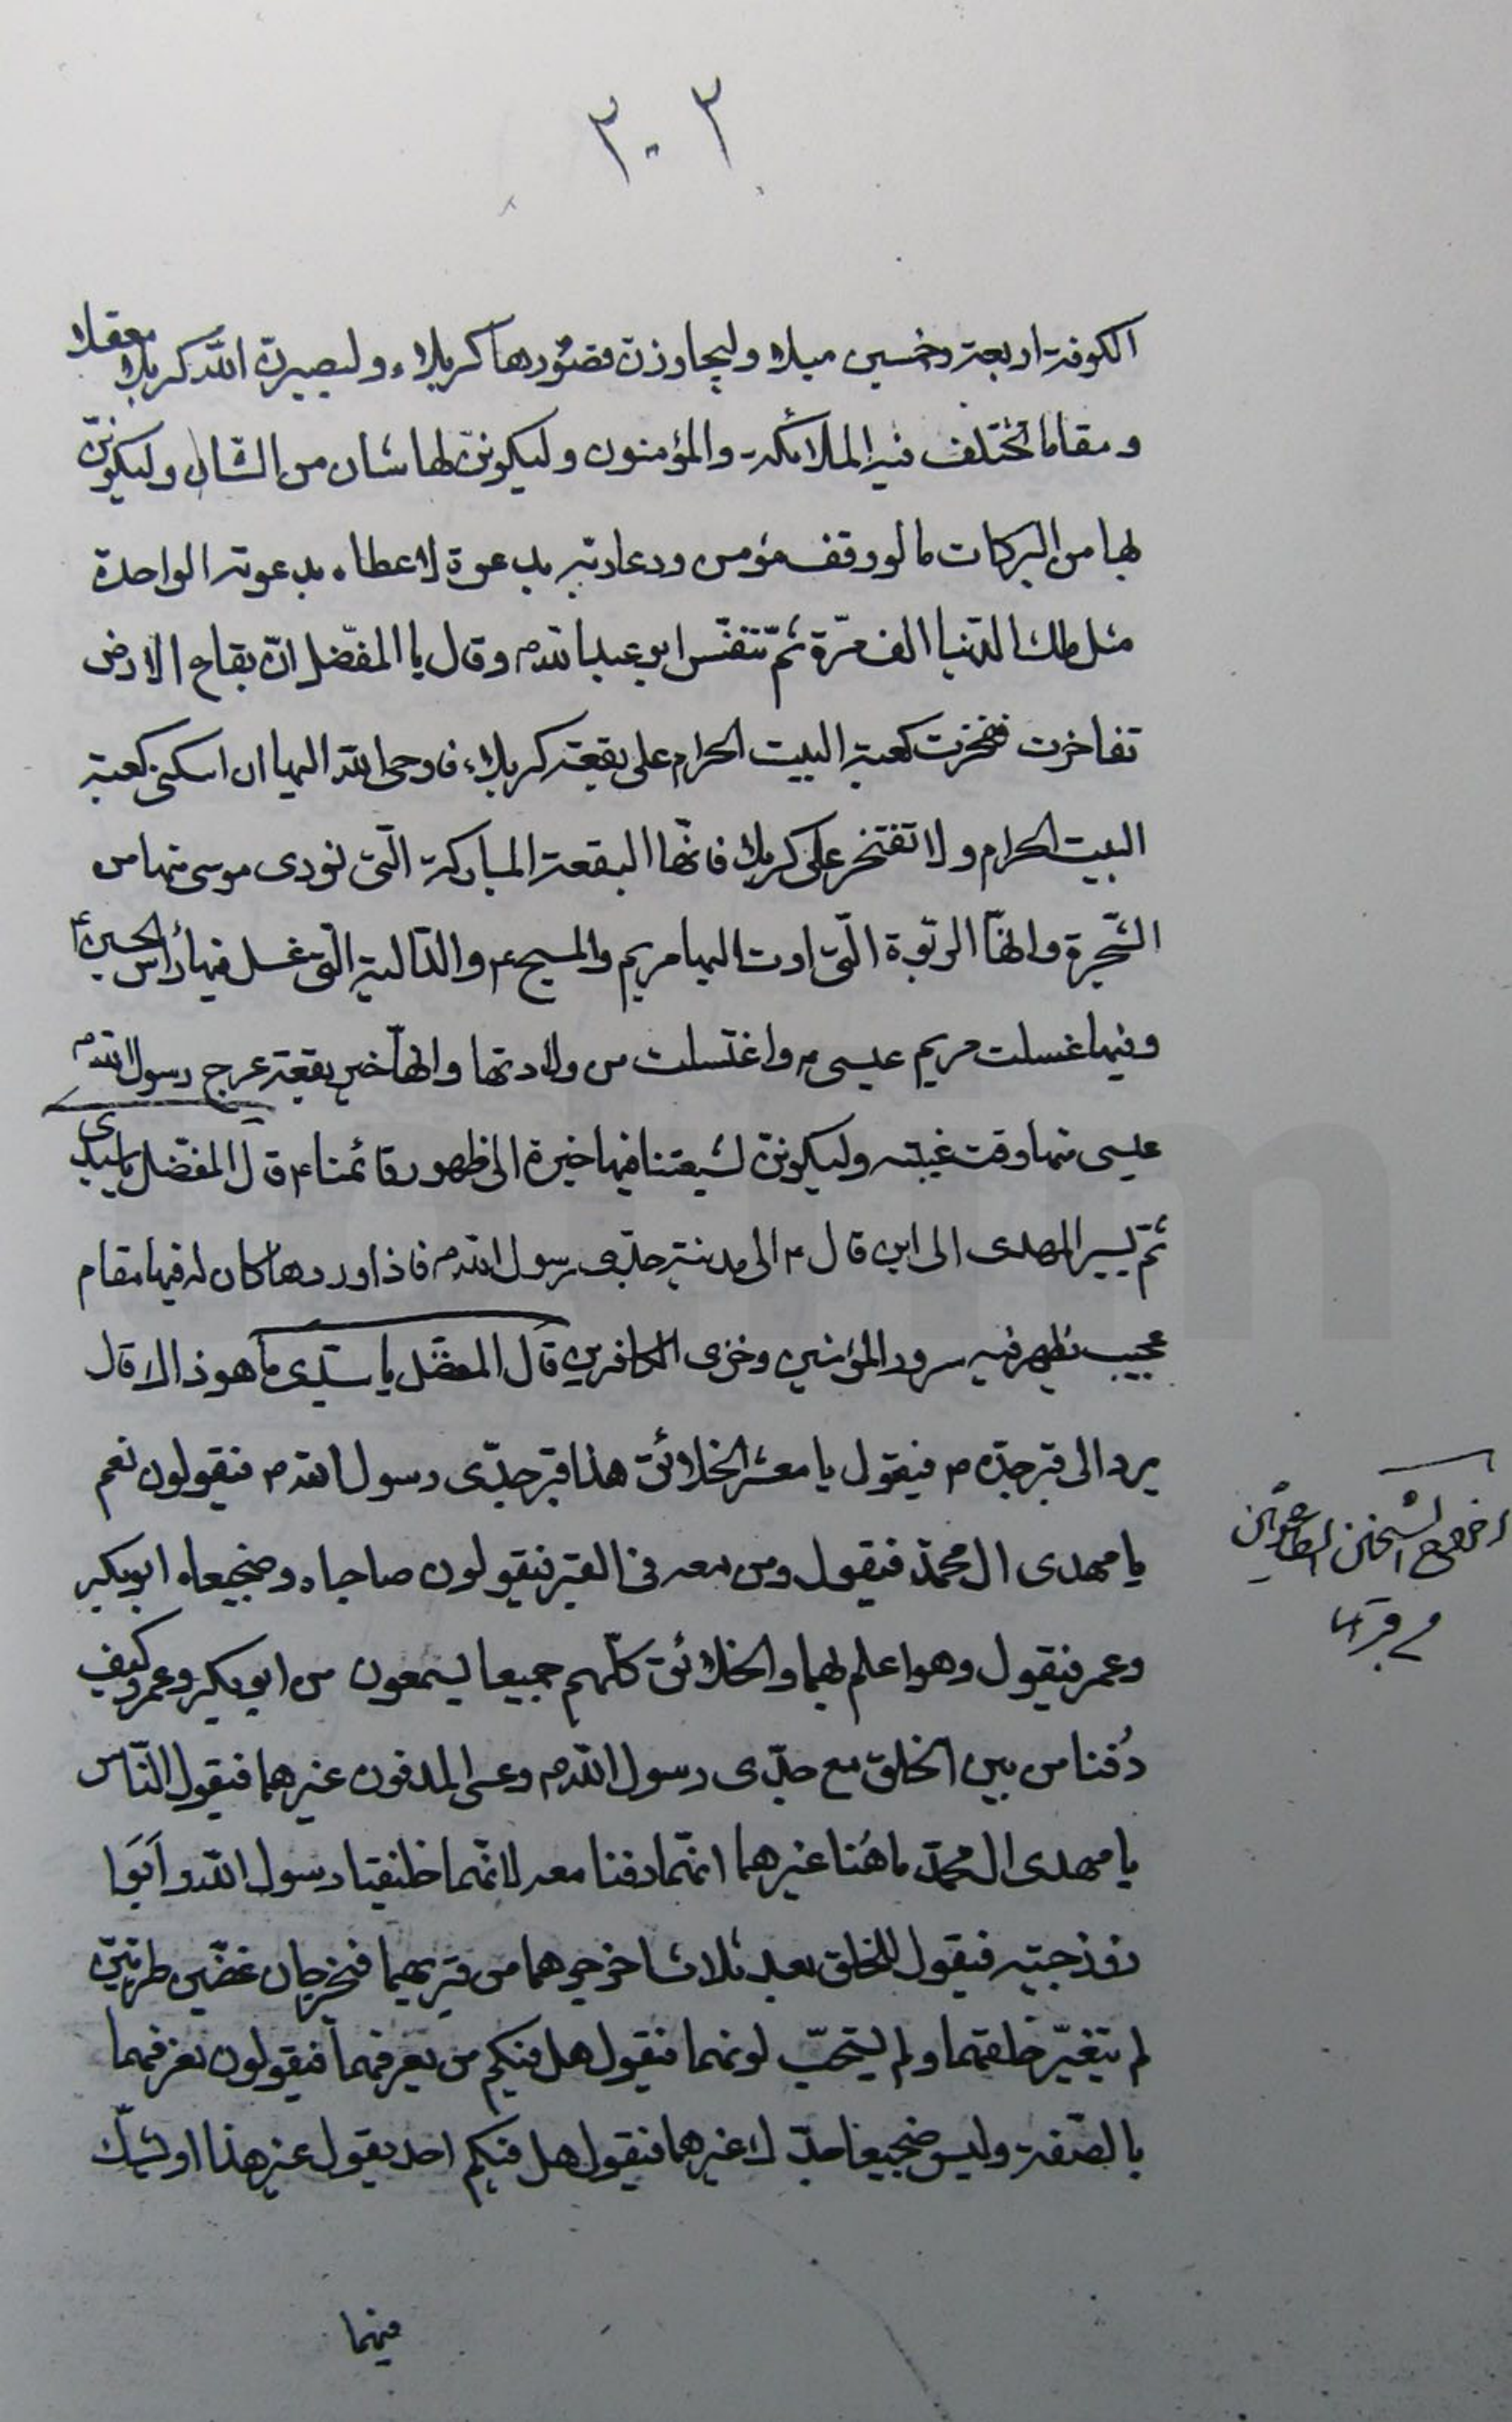 ٣٠٢
الكوفة اربعة وخمسين ميلا وليجاوزن قصورها كربلاء وليصيرن الله كربلا معقلا
ومقاما تختلف فيه الملائكة والمؤمنون وليكونن لها شان من الشان وليكونن
لها من البركات ما لو وقف مؤمن ودعا ربه بدعوة لاعطاه بدعوته الواحدة
مثل ملك الدنيا الف مرّة ثمّ تنفّس ابو عبد الله م وقال يا المفضل انّ بقاع الارض
تفاخرت ففخرت كعبة البيت الحرام على بقعة كربلاء فاوحى الله اليها ان اسكنى كعبة
البيت الحرام ولا تفتخر على كربلا فانّها البقعة المباركة الّتى نودى موسى منها من
الشّجرة وانهّا الربوة الّتى اوت اليها مريم والمسيح ع والدّالية الّتى غسل فيها رأس الحسين ع
وفيها غسلت مريم عيسى م واغتسلت من ولادتها وانهّا خير بقعة عرج رسول الله م
عيسى منها وقت غيبته وليكوننّ لشيعتنا فيها خيرة الى ظهور قائمنا م قال المفضل يا سيدى
ثمّ يسير المهدى الى اين قال م الى مدينة جدّى رسول الله م فاذا وردها كان له فيها مقام
عجيب يظهر فيه سرور المؤمنين وخزى الكافرين قال المفضل يا سيّدى ما هو ذاك قال
يرد الى قبر جدّه م فيقول يا معشر الخلائق هذا قبر جدّى رسول الله م فيقولون نعم
يا مهدى ال محمّد فيقول ومن معه فى القبر فيقولون صاحباه وضجيعاه ابو بكر
وعمر فيقول وهو اعلم بهما والخلائق كلّهم جميعا يسمعون من ابو بكر وعمر وكيف
دُفنا من بين الخلق مع جدّى رسول الله م وعسى المدفون غيرهما فيقول النّاس
يا مهدى ال محمّد ما هُنا غيرهما انّهما دفنا معه لانّهما خليفتا رسول الله وابَوا
زوجتيه فيقول للخلق بعد ثلاث اخرجوهما من قبريهما فيخرجان غضّين طريّين
لم يتغيّر خلقهما ولم يشحب لونهما فيقول هل فيكم من يعرفهما فيقولون نعرفهما
بالصّفة وليس ضجيعا جدّك غيرهما فيقول هل فيكم احد يقول غير هذا او يشك
فيهما